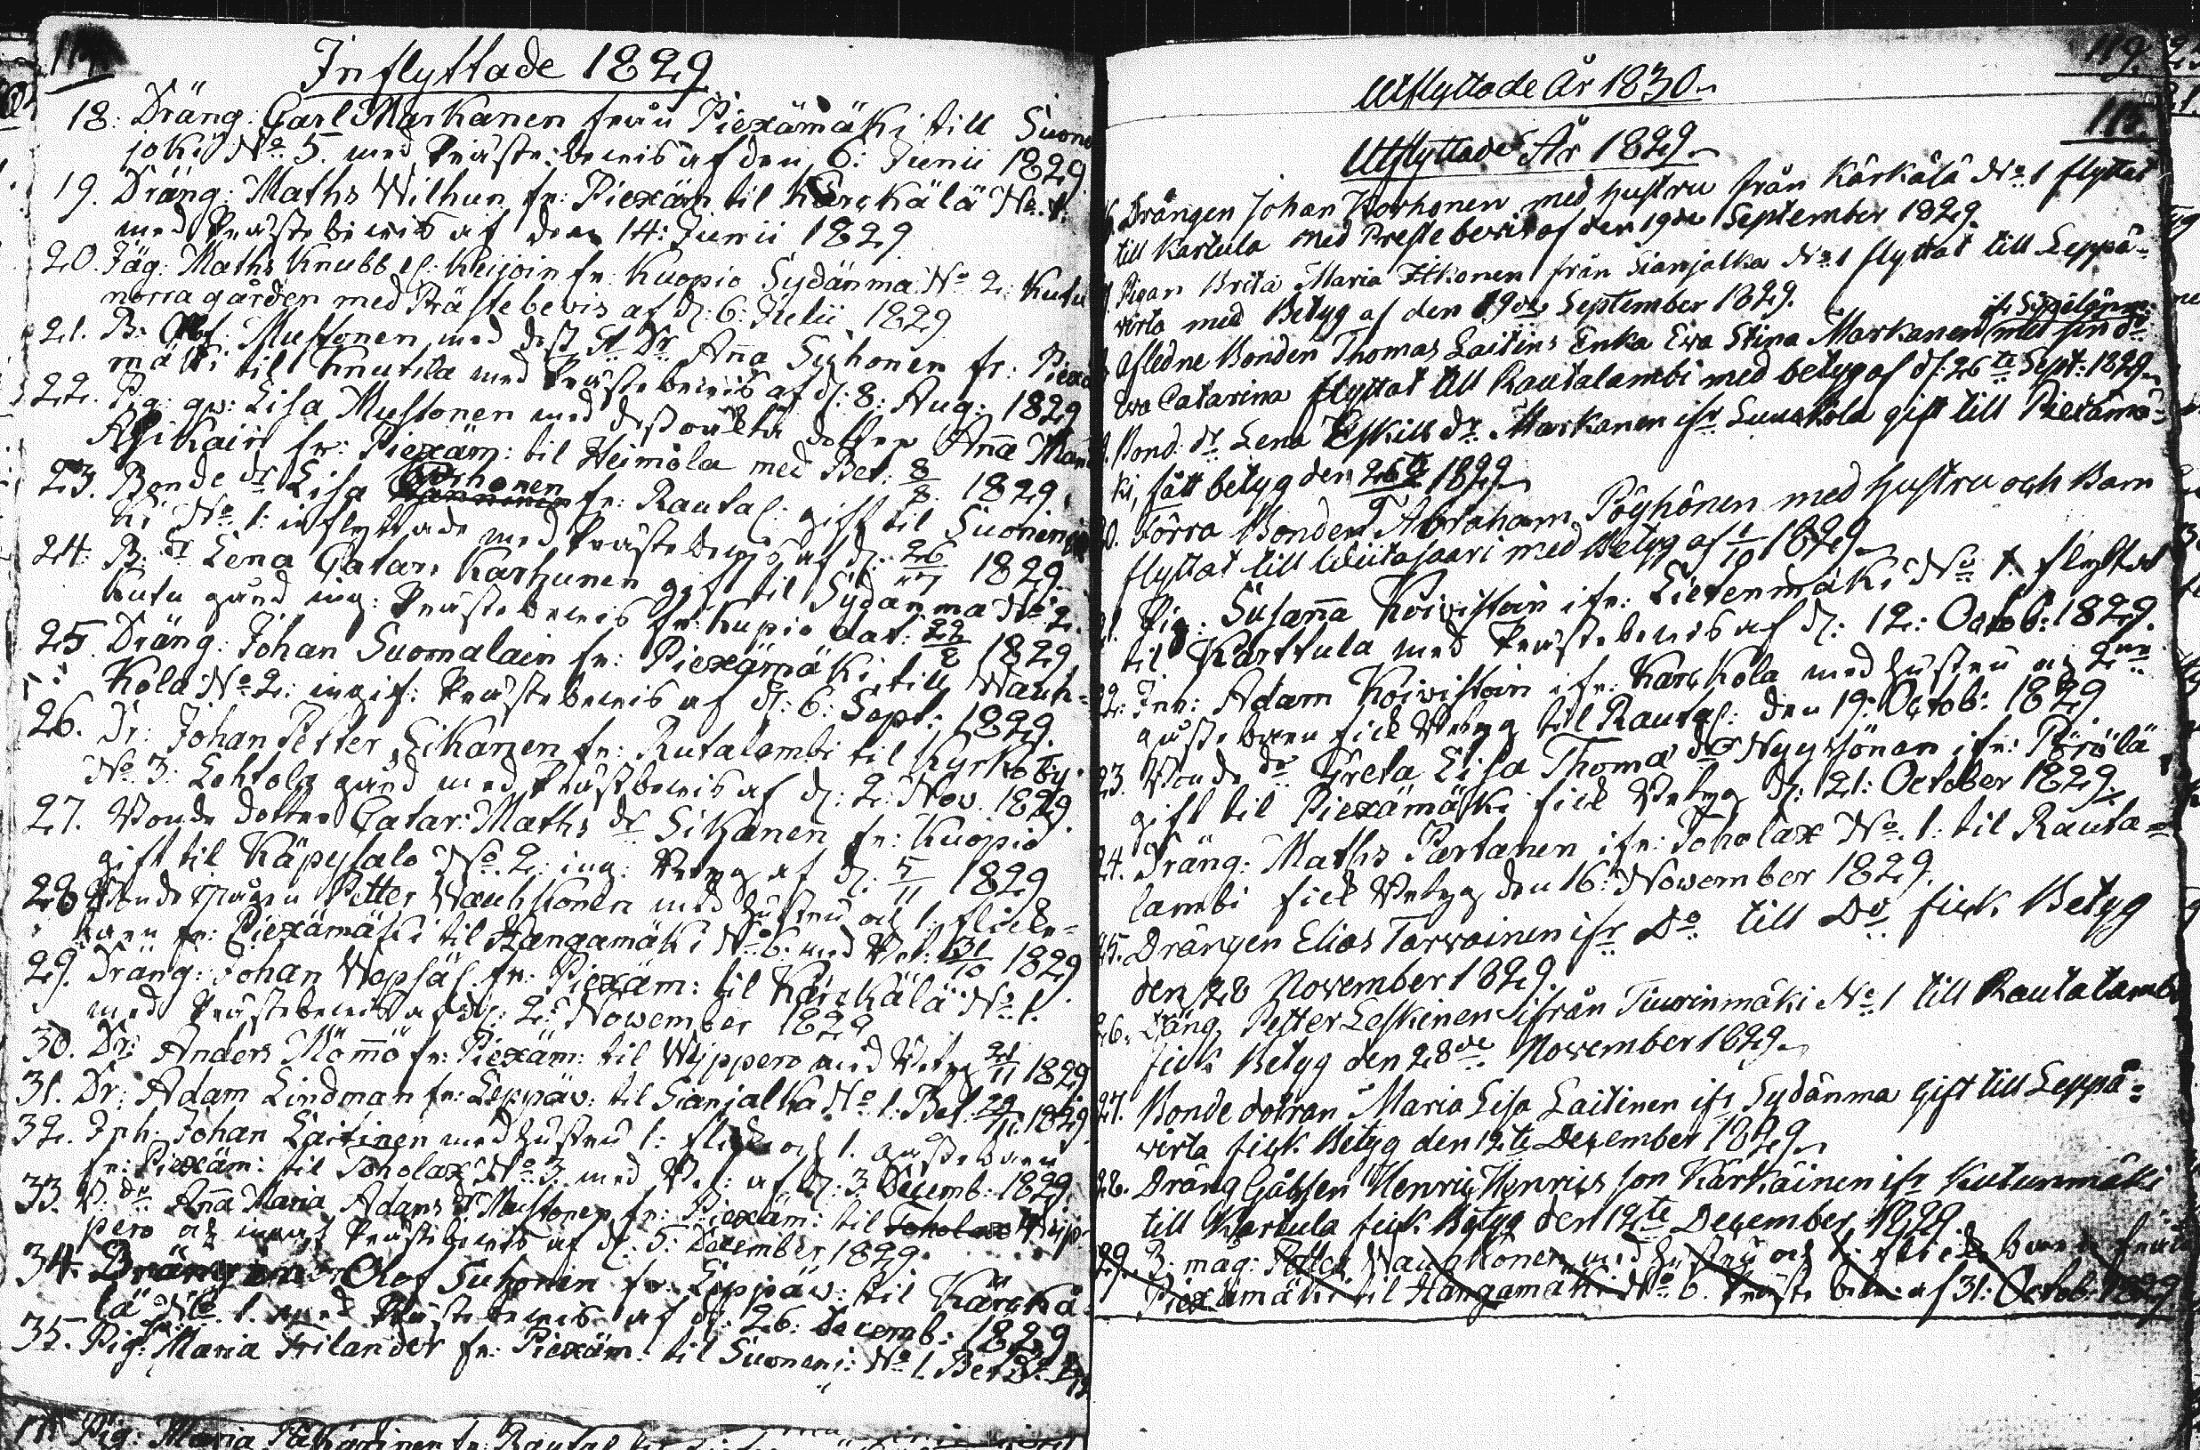 Inflyttade 1829
18. Dräng: Carl Markanen från Piexämäki till Suone
joki No 5. med Prästebevis af den 6: Junii 1829
19. Dräng: Maths Wilhun fr: Piexäm til Kärckälä No 1.
med Prästebewis af den 14: Junii 1829
20. Jäg: Maths Knubb el: Keijoin fr: Kuopio Sydänma No 2: Kutu
norra gården med Prästebevis af d: 6: Julii 1829
21. B: Olof Mustonen med dess St Dr Anna Syhonen fr: Piexä
mäki til Knutila med Prästebevis af d: 8: Aug: 1829
22. Pig: Lisa Mustonen med dess oäkta dotter Anna Mar
Asikain fr: Piexäm: til Heimola med Bet: 8/8 1829
23. Bonde dr Lisa Korhonen fr: Rautal: gift til Suonenjo
ki No 1: inflyttade med Prästebevis af d: 26/ 1829
24: B: dr Lena Catar: Karhunen gift til Sydänma No 2.
Kutu gård ing: Prästebevis fr: Kupio dat: 1829
25. Dräng: Johan Suomalain fr: Piexämäki till Wauh-
kola No 2: ingif: Prästebevis af d: 6: Sept: 1829.
26. Dr: Johan Petter Sikanen fr: Rutalambi til Kyrkoby
No 3: Lehtola gård med Prästbevis af d: 2: Nov. 1829.
27. Bonde dotter Catar: Maths dr Sikanen fr: Kuopio
gift til Käpysalo No 2: ing: Betyg af d: 5/11 1829
28 Bonde mågen Petter Wauhkonen med hustru och 1: flicke-
barn fr: Piexämäki til Hangamäki No 6: med Bet: 31/10 1829
29. Dräng: Johan Wepsäl: fr: Piexäm: til Kärckälä No 1.
med Prästebevis af d: 2: Nowember 1829
30. Dr: Anders Mömmö fr: Piexäm: til Wippero med Betyg 21/11 1829
31. Dr: Adam Lindman fr: Leppäv: til Sianjalka No 1: Bet. 29/11 1829.
32. Inh: Johan Laitinen med hustru 1: flicke och 1. gossebarn
fr: Piexäm: til Toholax No 3 med Bet: af d: 3 Decemb: 1829.
33. B: dr Anna Maria Adams dr Mustonen fr: Piexäm: til Toholax Wip-
pero ing: Prästebevis af d: 5: December 1829.
34. Drängen Olof Suhonen fr: Leppäv: til Kärckä-
lä No 1. med Prästebevis af d: 26: Decemb: 1829
35. Pig: Maria Frilander fr: Piexäm: til Suonenj: No 1. Bet
Pig: Maria
119.
Utflyttade År 1830.
113.
Utflyttade År 1829.
Drängen Johan Korhonen med Hustru från Kärkälä No 1 flyttat
till Kartula med Prestebevis af den 19de September 1829.
Pigan Brita Maria Itkonen från Sianjalka No 1 flyttat till Leppä-
virta med Betyg af den 19de September 1829.
Afledne Bonden Thomas Laitins Enka Ewa Stina Markanen med sin dr
Ewa Catarina flyttat till Rautalambi med betyg af d: 26te Sept: 1829.
Bond: dr Lena Eskils dr Markanen ifr Luuskola gift till Piexämä-
ki, fått betyg den 26te 1829.
20. Förra Bonden Abraham Pöyhönen med Hustru och Barn
flyttat till Wiitasaari med Betyg af 1/10 1829.
21. Pig: Susanna Koivistoin ifr: Lietenmäki No 1. flyttat
til Karttula med Prästebevis af d: 12: Octob: 1829.
22: Inh: Adam Koivistoin ifr: Karckola med hustru och 2ne
gossebarn fick Betyg til Rautal: den 19: Octob: 1829
23. Bonde dr Greta Lisa Thoma dr Nyyssönen ifr: Pörölä
gift til Piexämäki fick Betyg d: 21: October 1829.
24. Dräng: Maths Partanen ifr: Toholax No 1: til Rauta-
lambi fick Betyg den 16: Nowember 1829.
25. Drängen Elias Tarvainen ifr Do till Do fick Betyg
den 28 November 1829.
26. Dräng Petter Leskinen ifrån Tiurinmäki No 1 till Rautalambi
fick Betyg den 28de November 1829.
27. Bonde dotran Maria Lisa Laitinen ifr Sydänma gift till Leppä-
virta fick Betyg den 12te December 1829.
28. Dräng Gåssen Henric Henrics son Kärkäinen ifr Kutunmäki
till Kartula fick Betyg den 12te December 1829.
29. B. måg: Petter Wauhkonen med hustru och 1: flicke barn från
Piexämäki til Hangamäki No 6. Präste bevis af 31: Octob: 1829